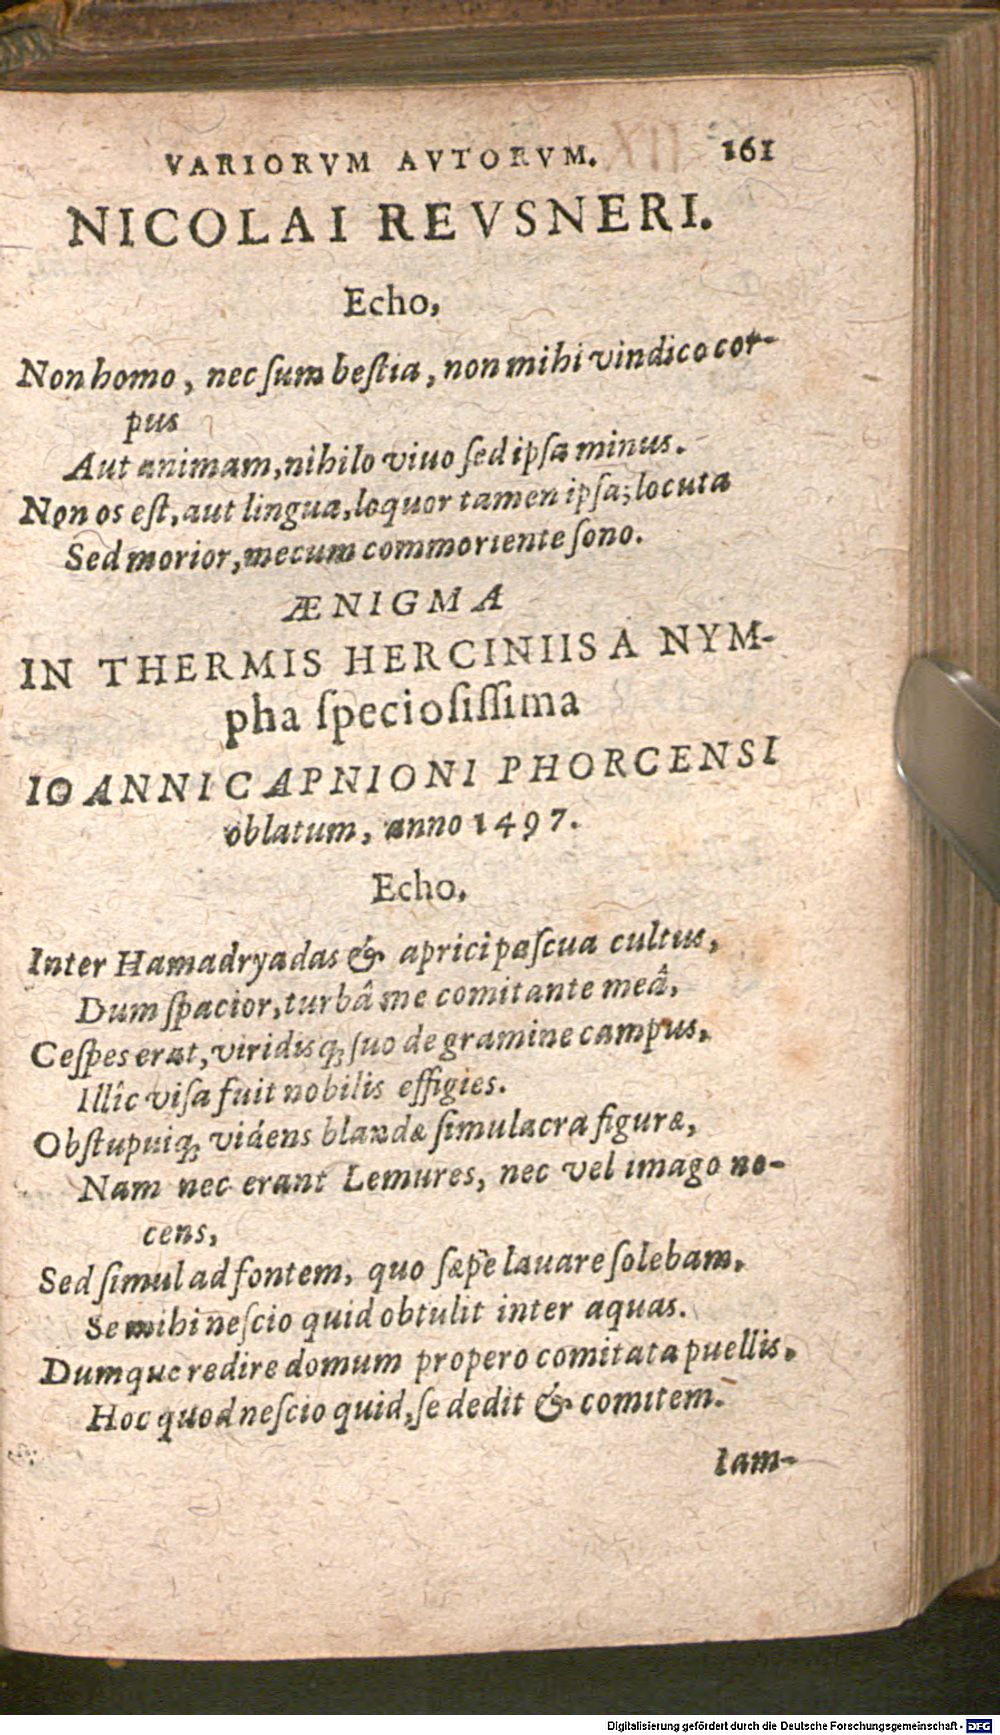 VARIORVM AVTORVM. 161
NICOLAI REVSNERI.
Echo,
Non homo, nec ſum beſtia, non mihi vindico cor-
pus
Aut animam, nihilo viuo ſed ipſa minus.
Non os eſt, aut lingua, loquor tamen ipſa; locuta
Sed morior, mecum commoriente ſono.
ÆNIGMA
IN THERMIS HERCINIIS A NYM-
pha ſpecioſiſſima
IOANNI CAPNIONI PHORCENSI
oblatum, anno 1497.
Echo.
Inter Hamadryadas & aprici paſcua cultus,
Dum ſpacior, turbâ me comitante meâ,
Ceſpes erat, viridisq́; ſuo de gramine campus,
Illîc viſa fuit nobilis effigies.
Obſtupuiq́; videns blandæ ſimulacra figuræ,
Nam nec erant Lemures, nec vel imago no-
cens,
Sed ſimul ad fontem, quo ſæpè lauare ſolebam,
Se mihi neſcio quid obtulit inter aquas.
Dumque redire domum propero comitata puellis,
Hoc quod neſcio quid, ſe dedit & comitem.
Iam-
Digitalisierung gefördert durch die Deutsche Forschungsgemeinschaft - DFG